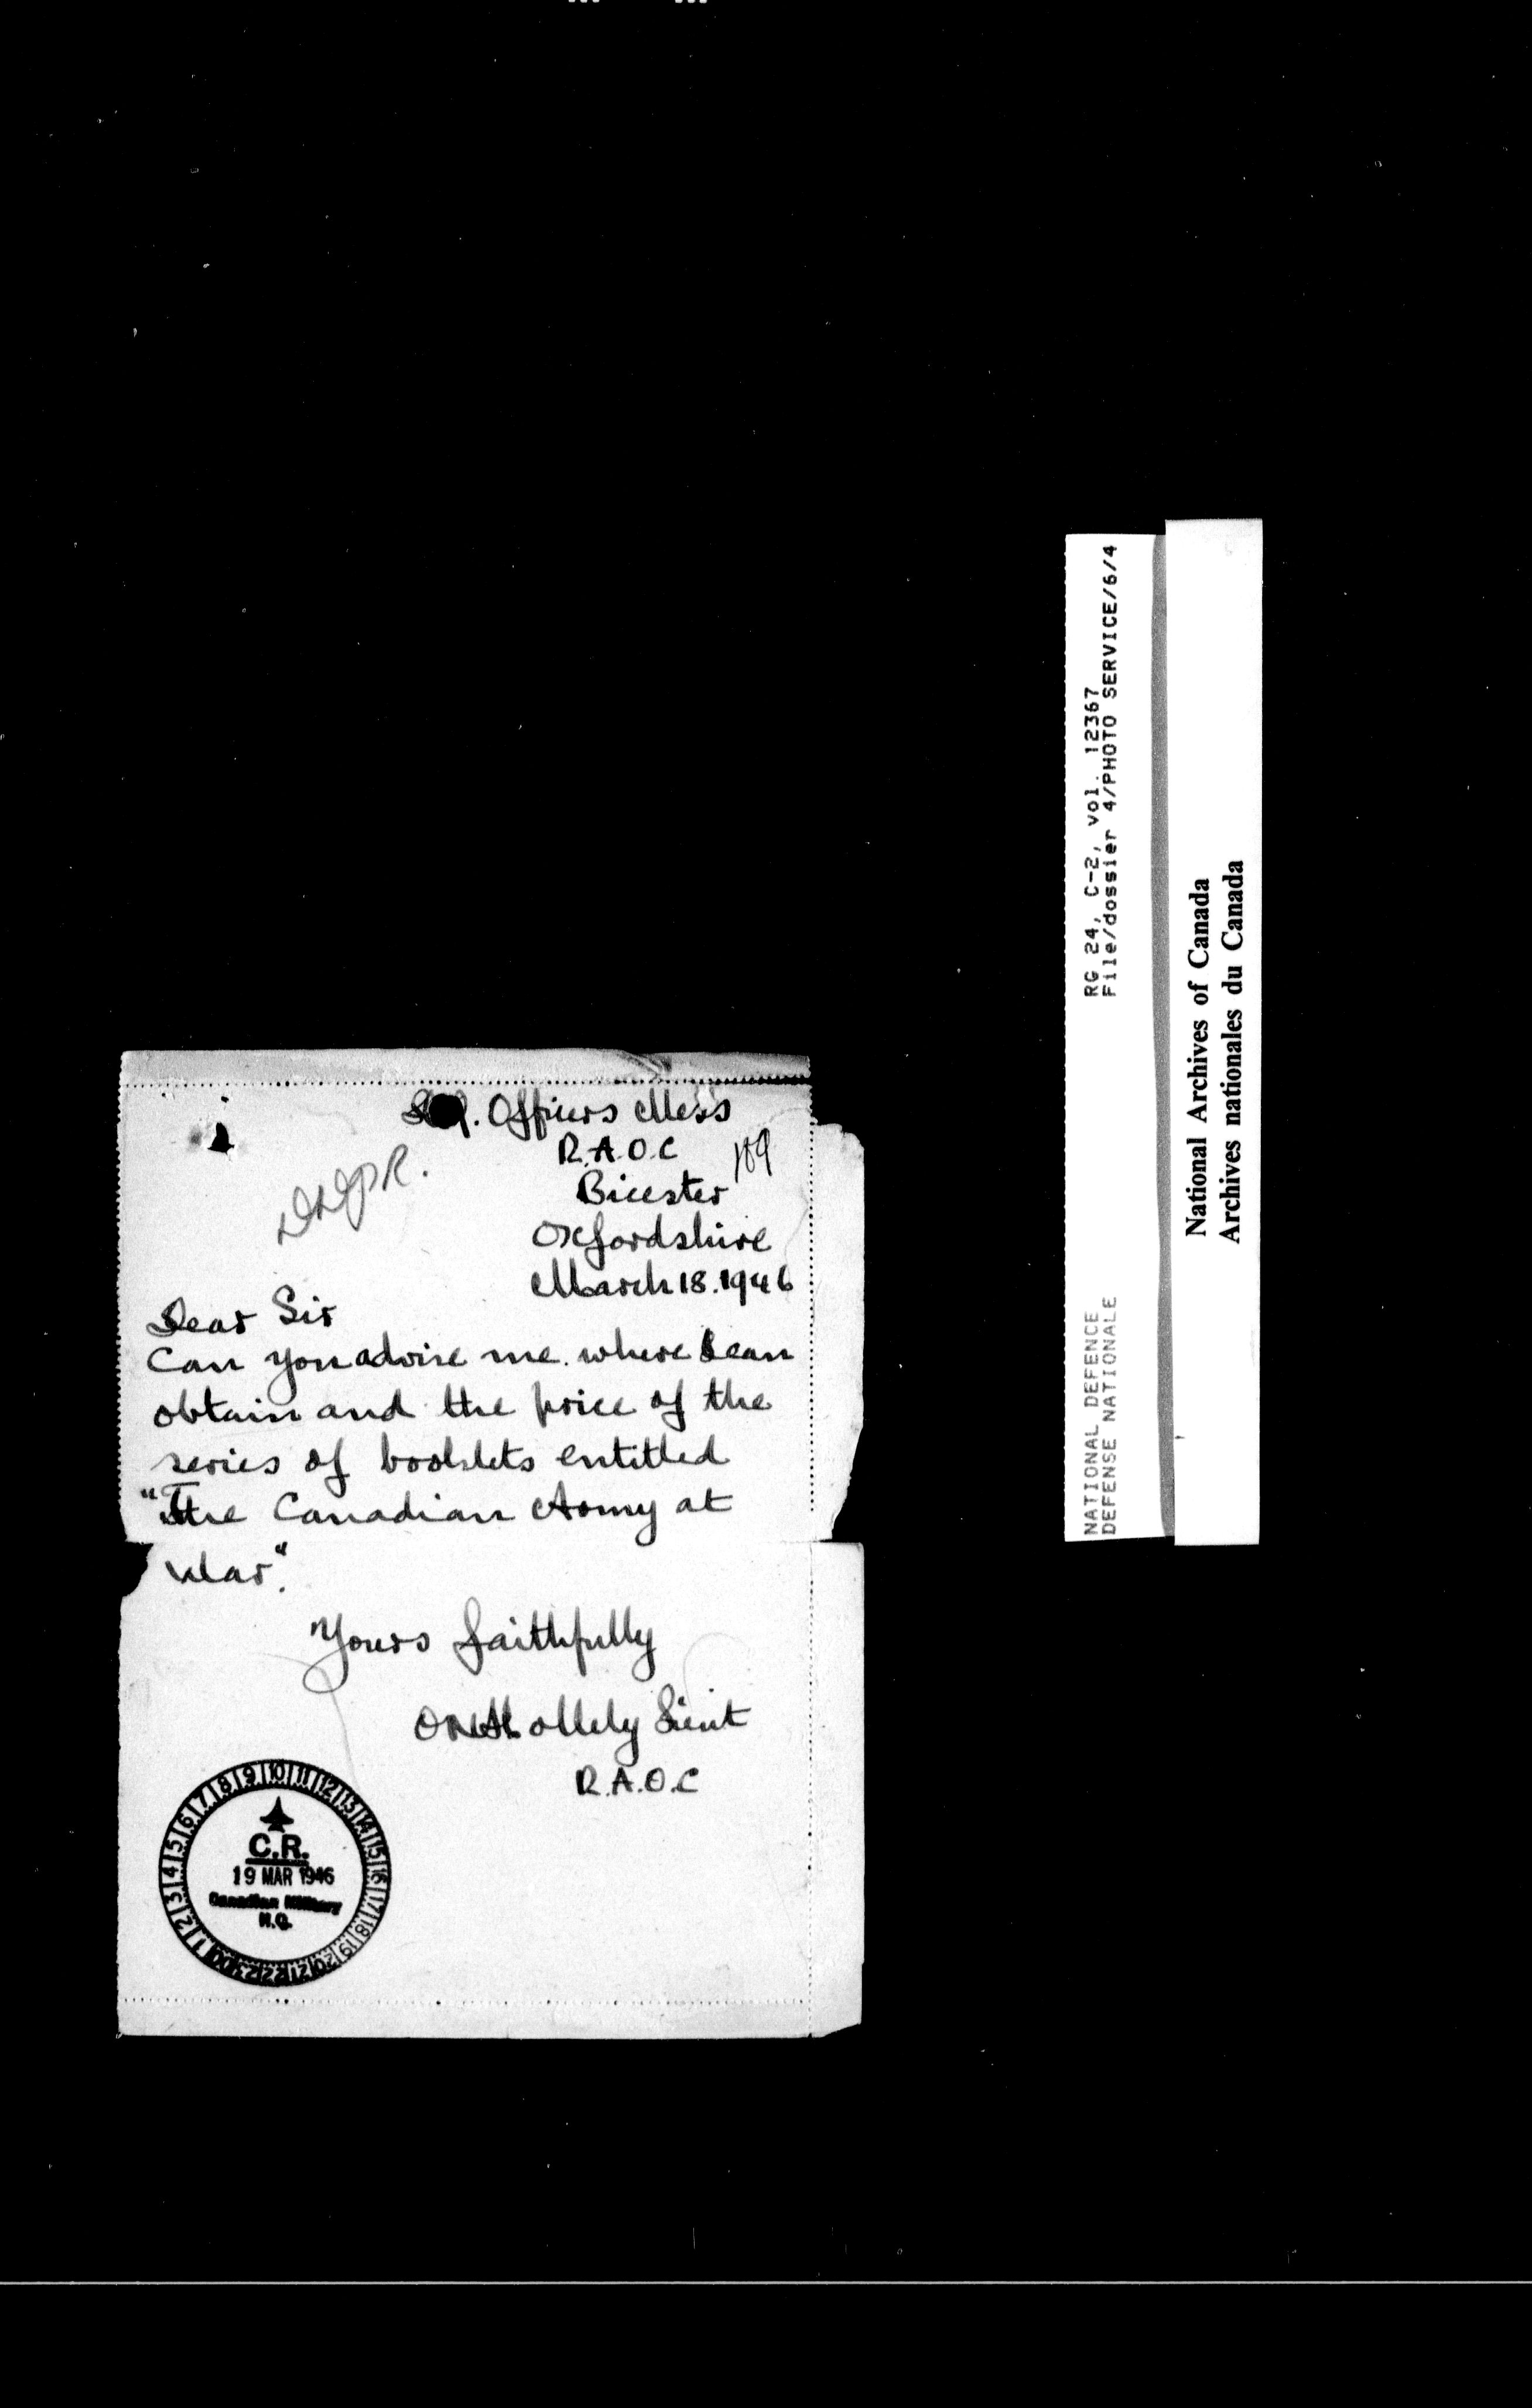 Officers Mess
R.A.O.C
109
Bicester
Oxfordshire
March 18. 1946
Dear Sir
Can you advise me where I can
obtain and the price of the
series of booklets entitled
"The Canadian Army at
War".
Yours faithfully
Lieut
R.A.O.C
1 2 3 4 5 6 7 8 9 10 11 12 13 14 15 16 17 18 19 20 21 22 23 00
C.R.
19 MAR 1946
Canadian Military
H.Q.
NATIONAL DEFENCE RG 24, C-2, vol. 12367
DEFENSE NATIONALE File/dossier 4/PHOTO SERVICE/6/4
National Archives of Canada
Archives nationales du Canada